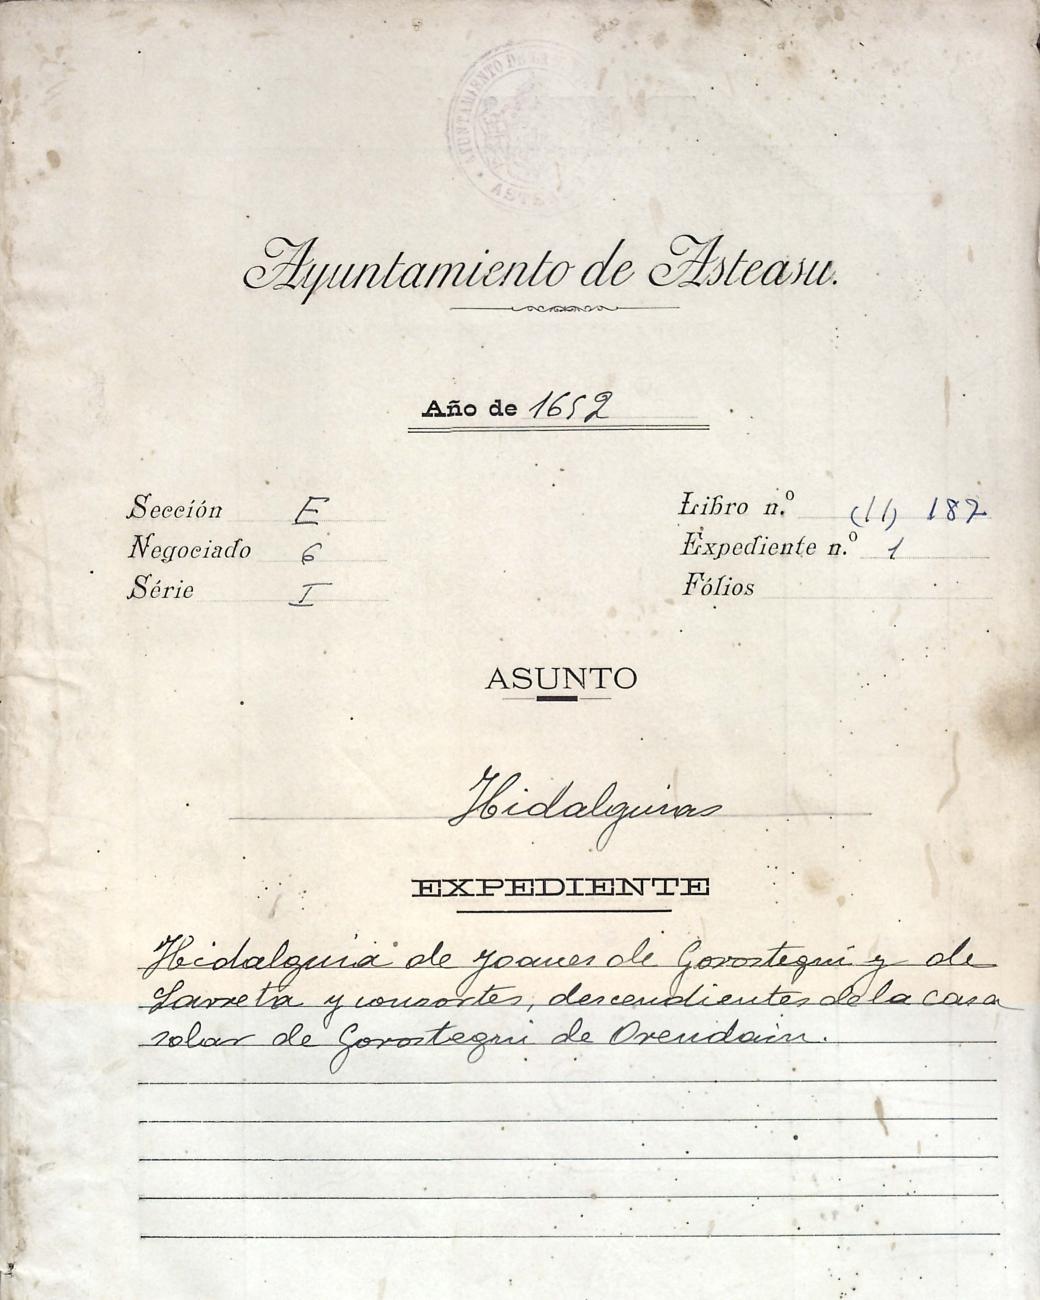 AYUNTAMIENTO DE LA
Ayuntamiento de Asteasu.
Año de 1652
Sección E
Negociado 6
Série I
Libro n.º (11) 187
Expediente n.º 1
Fólios
ASUNTO
Hidalguias
EXPEDIENTE
Hidalguia de Joanes de Gorostegui y de
Larreta y consortes, descendientes de la casa
solar de Gorostegui de Orendain.